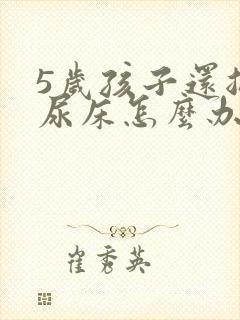 5歲孩子還
尿床怎麼办
崔秀英